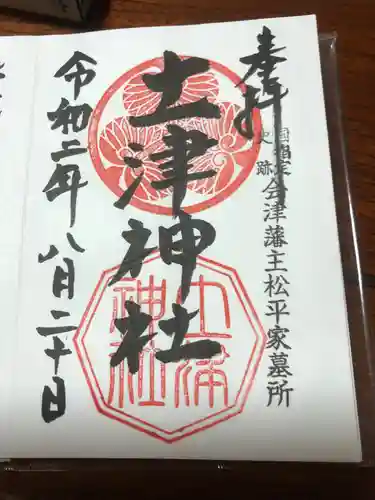 奉拝
国指定
史跡
会津藩主松平家墓所
土津神社
土津
神社
令和二年八月二十日